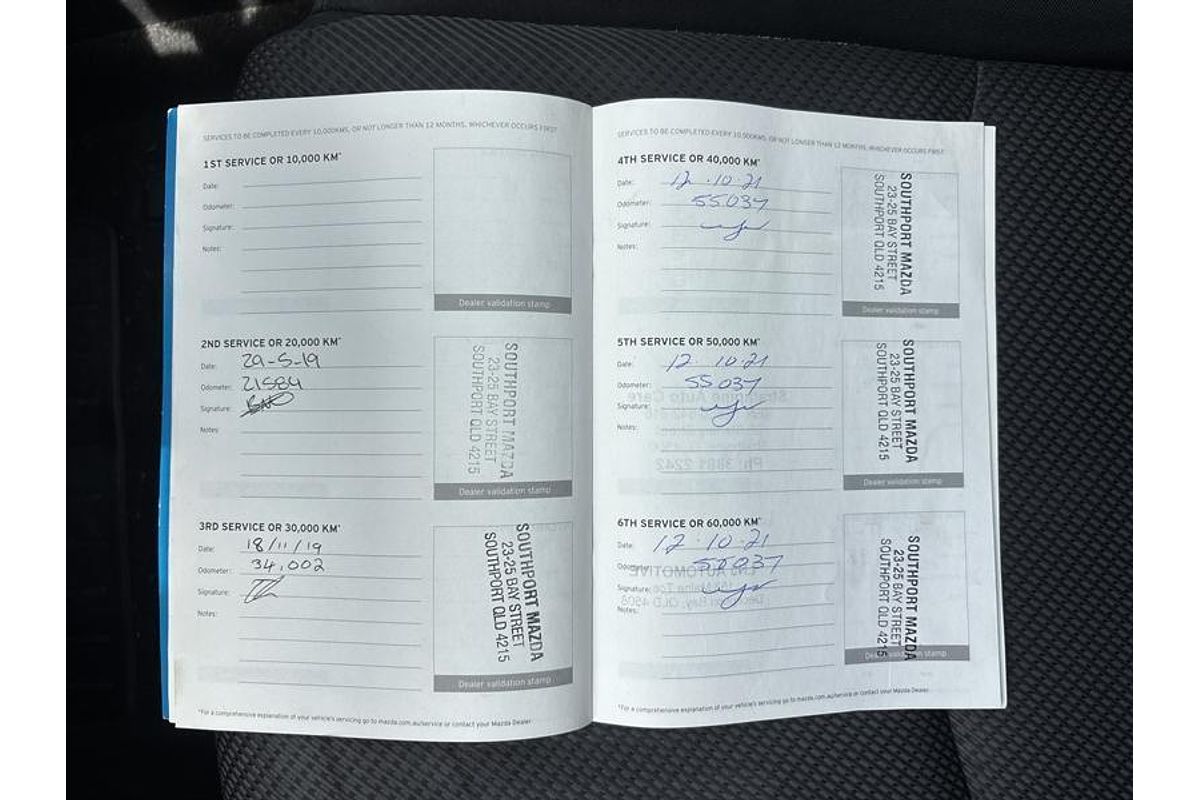 SERVICES TO BE COMPLETED EVERY 10,000KMS, OR NOT LONGER THAN 12 MONTHS, WHICHEVER OCCURS FIRST
1ST SERVICE OR 10,000 KM*
Date:
Odometer:
Signature:
Notes:
Dealer validation stamp
2ND SERVICE OR 20,000 KM*
Date: 29-5-19
Odometer: 21584
Signature:
Notes:
SOUTHPORT MAZDA
23-25 BAY STREET
SOUTHPORT QLD 4215
Dealer validation stamp
3RD SERVICE OR 30,000 KM*
Date: 18/11/19
Odometer: 34,002
Signature:
Notes:
SOUTHPORT MAZDA
23-25 BAY STREET
SOUTHPORT QLD 4215
Dealer validation stamp
*For a comprehensive explanation of your vehicle's servicing go to mazda.com.au/service or contact your Mazda Dealer.
SERVICES TO BE COMPLETED EVERY 10,000KMS, OR NOT LONGER THAN 12 MONTHS, WHICHEVER OCCURS FIRST
4TH SERVICE OR 40,000 KM*
Date: 12.10.21
Odometer: 55037
Signature:
Notes:
SOUTHPORT MAZDA
23-25 BAY STREET
SOUTHPORT QLD 4215
Dealer validation stamp
5TH SERVICE OR 50,000 KM*
Date: 12.10.21
Odometer: 55037
Signature:
Notes:
SOUTHPORT MAZDA
23-25 BAY STREET
SOUTHPORT QLD 4215
Dealer validation stamp
6TH SERVICE OR 60,000 KM*
Date: 12.10.21
Odometer: 55037
Signature:
Notes:
SOUTHPORT MAZDA
23-25 BAY STREET
SOUTHPORT QLD 4215
Dealer validation stamp
*For a comprehensive explanation of your vehicle's servicing go to mazda.com.au/service or contact your Mazda Dealer.